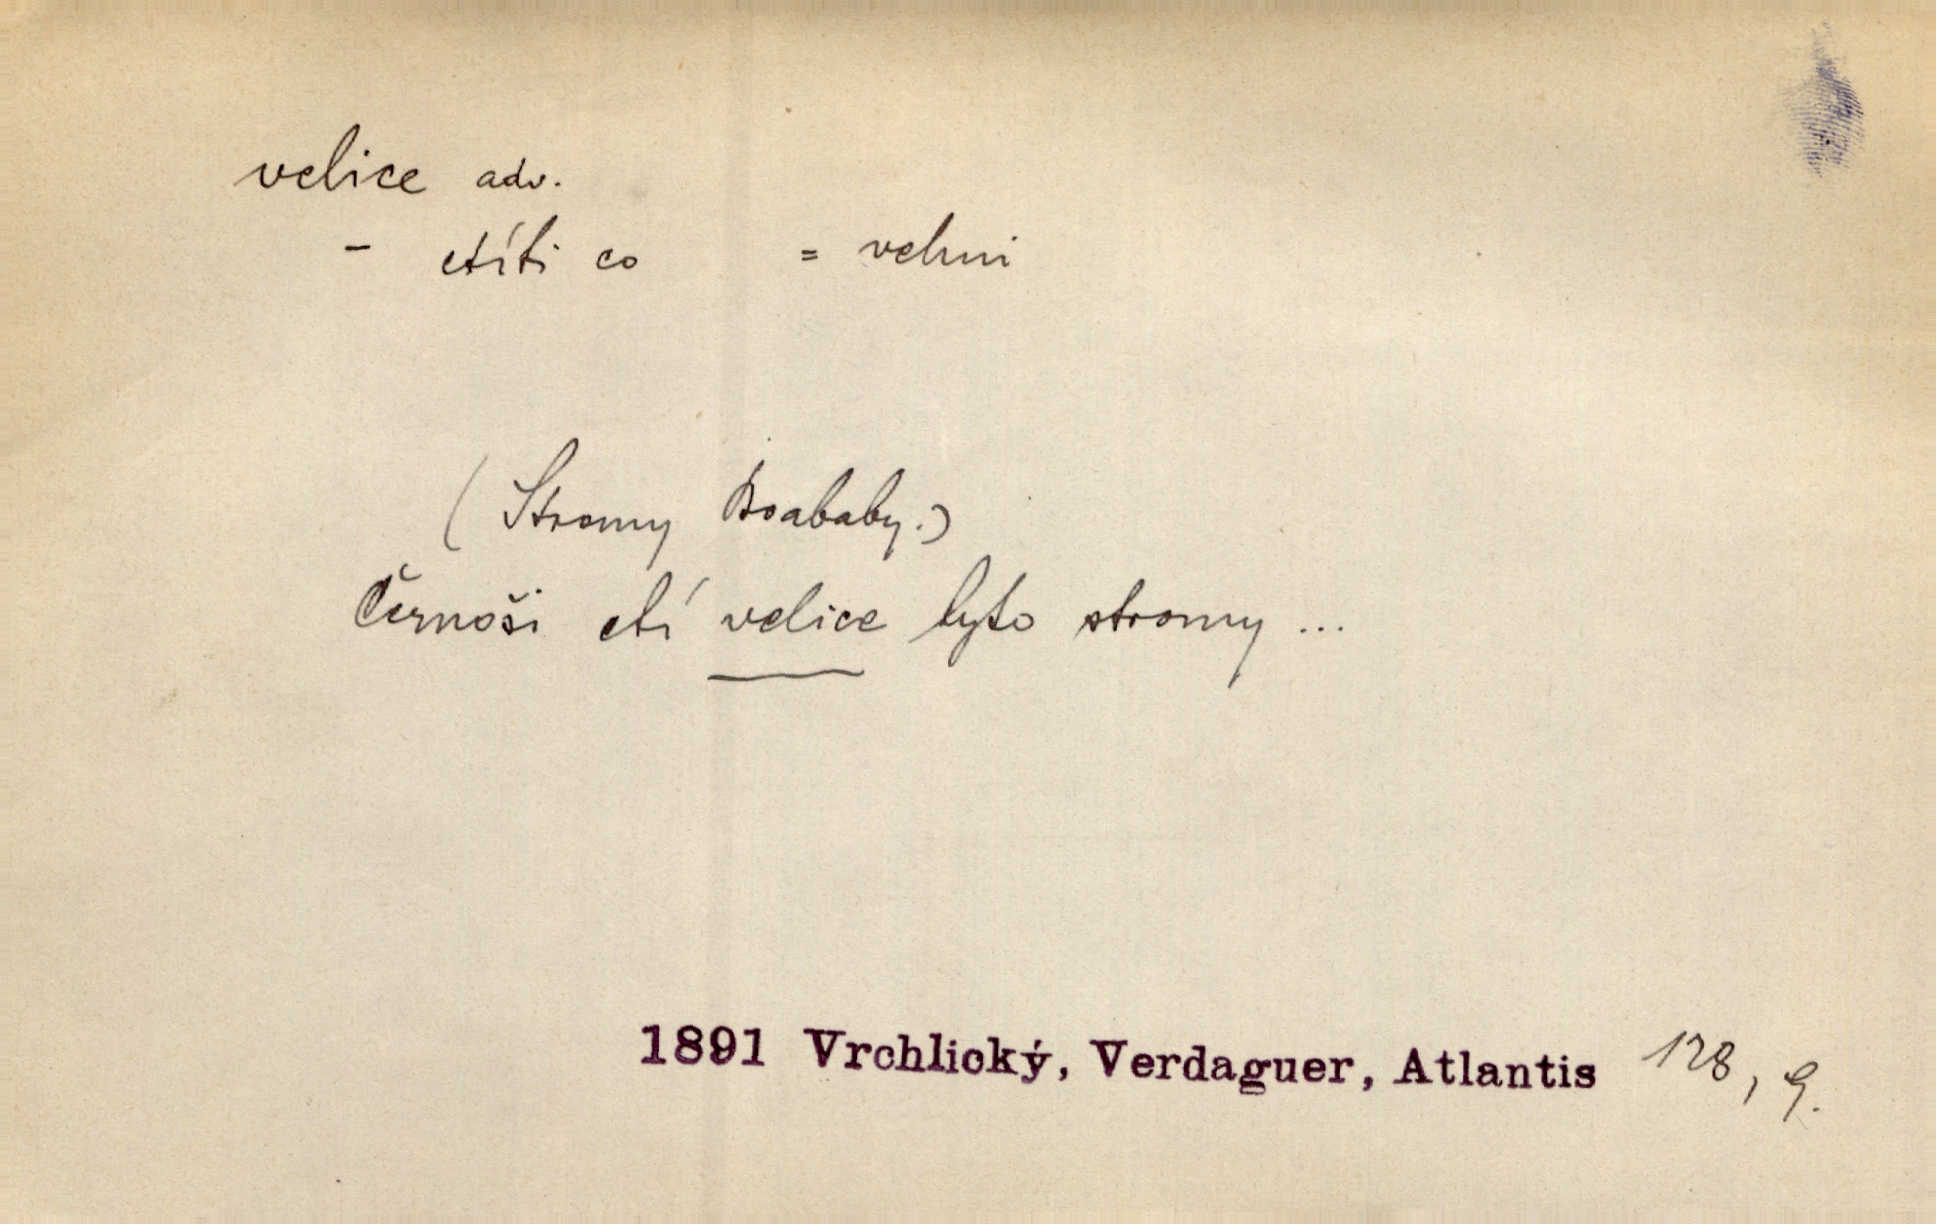 velice adv.
– ctíti co = velmi
(Stromy Boababy.)
Černoši ctí velice tyto stromy ...
1891 Vrchlický, Verdaguer, Atlantis 128, 9.